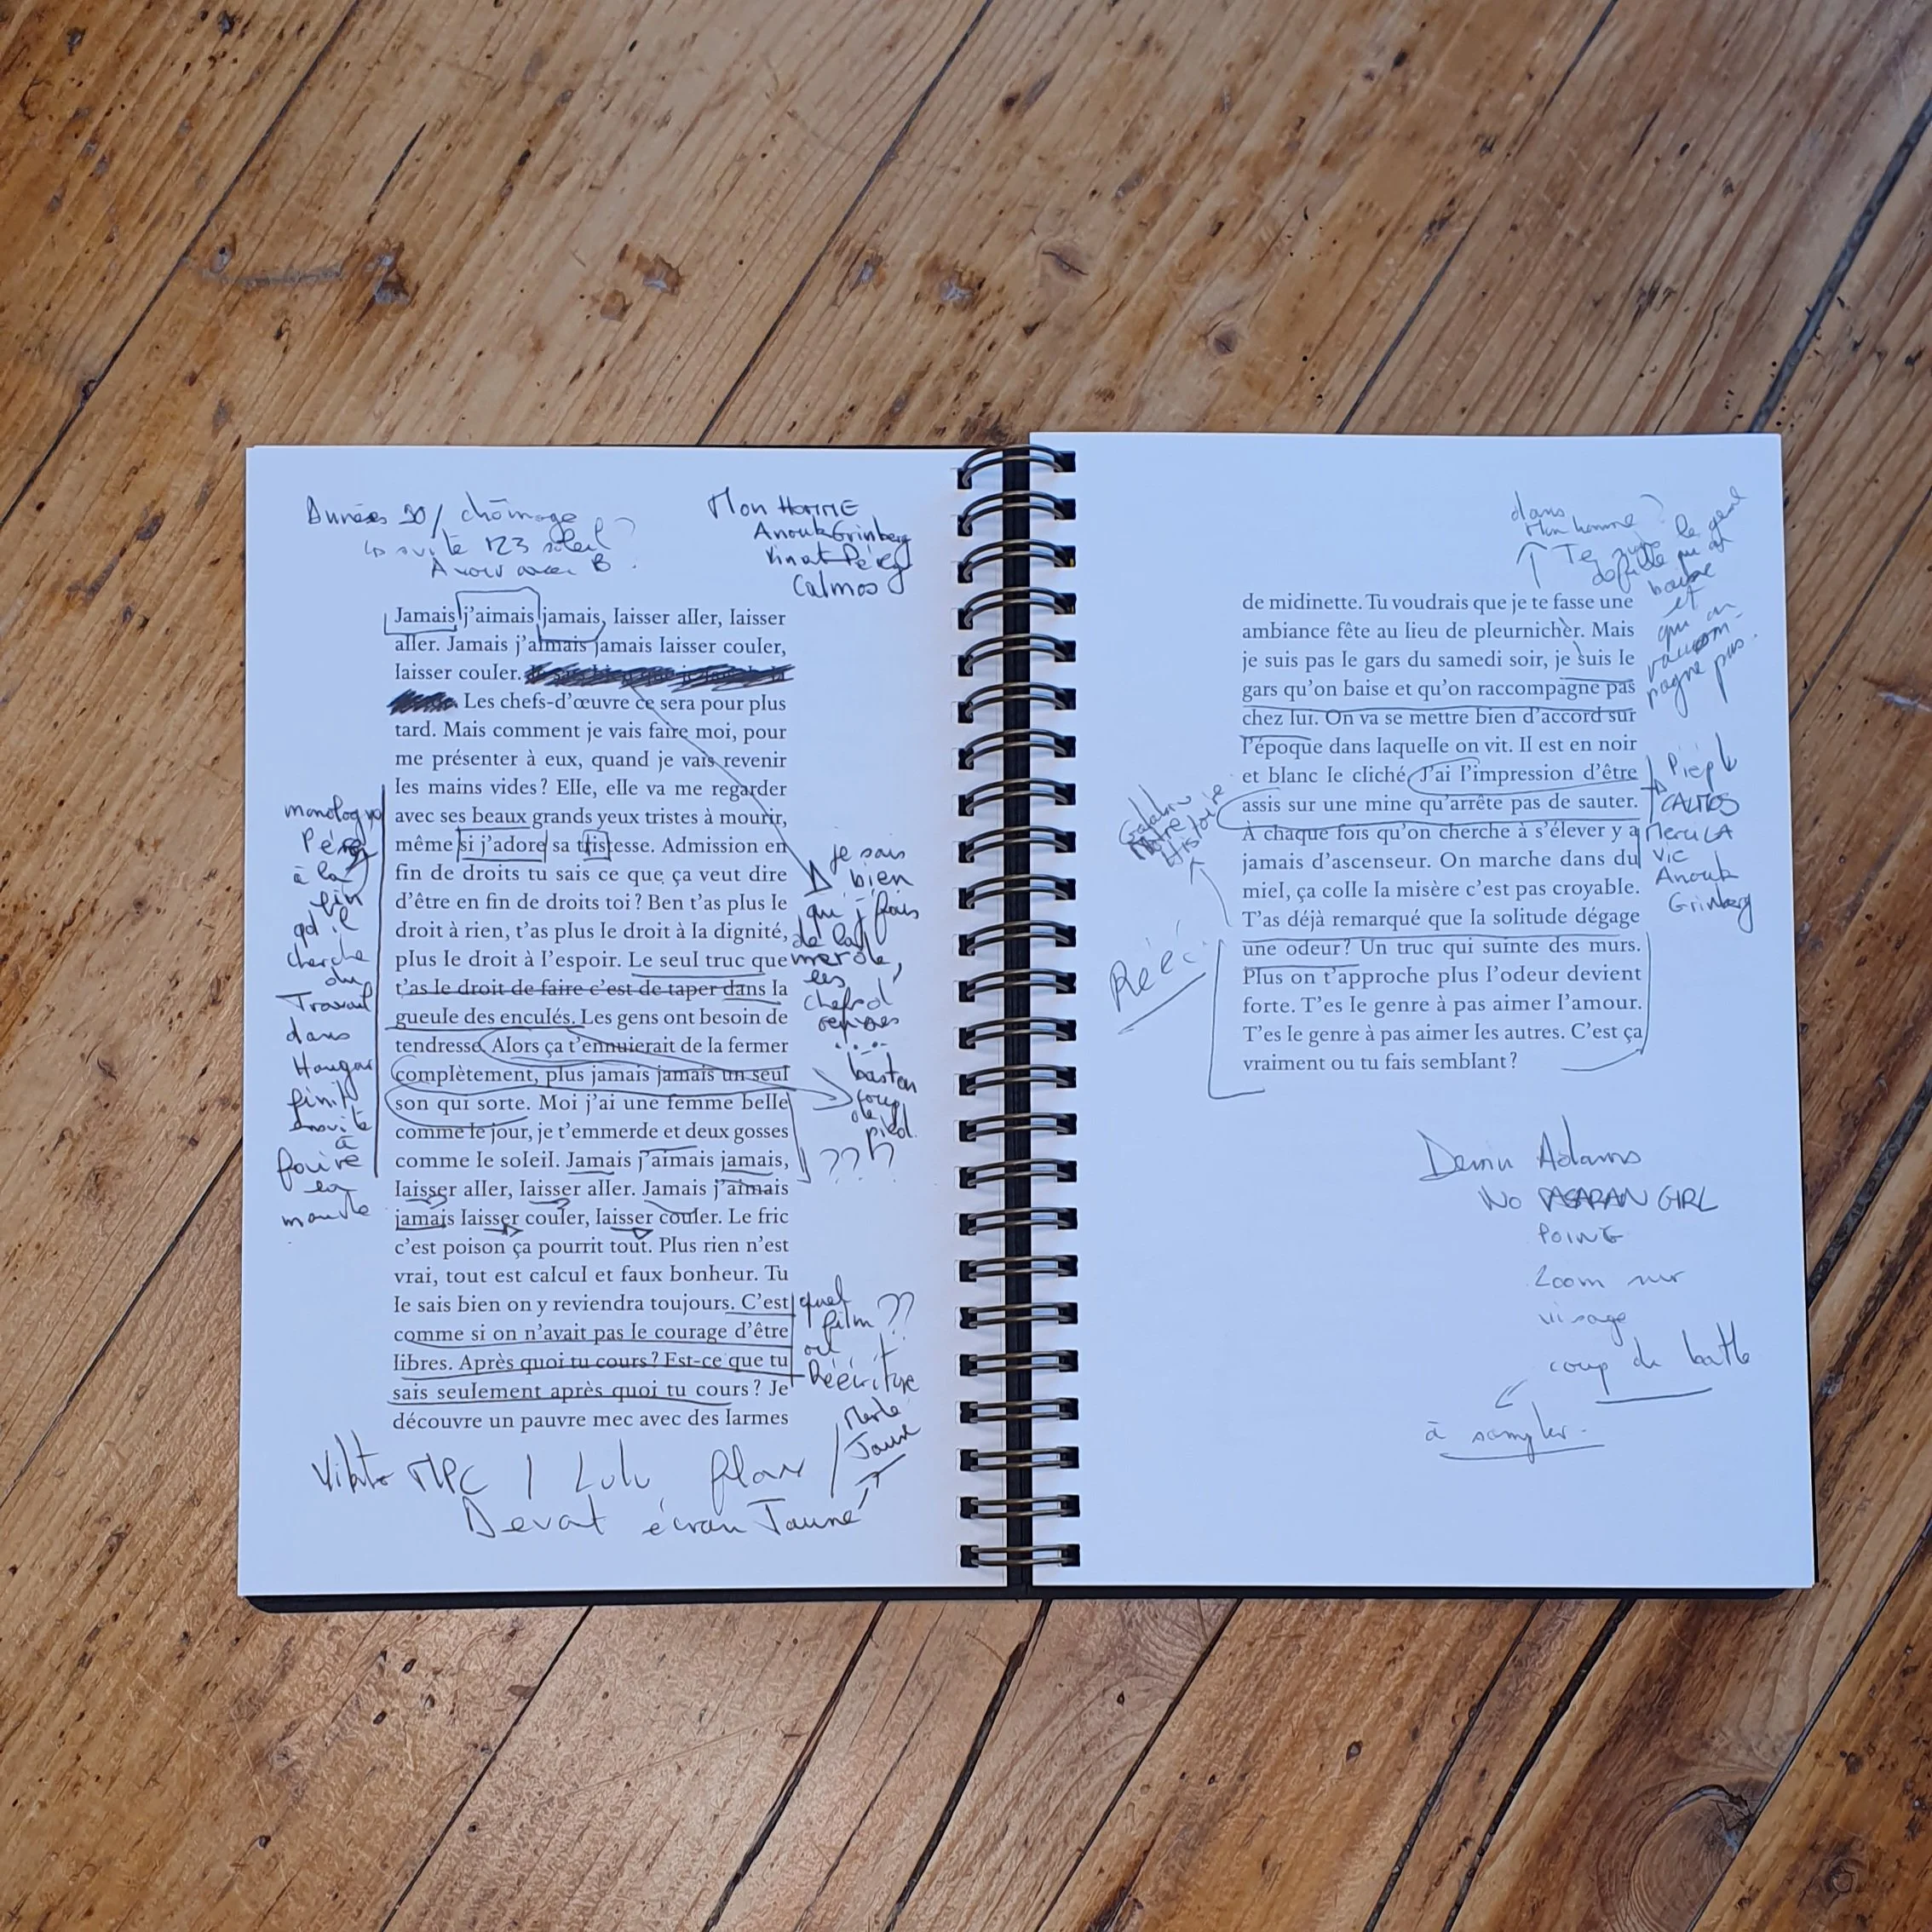 Années 90 / chômage
la suite 123 soleil ?
A voir avec B.
Mon HOMME
Anouk Grinberg
Vincent Pérez
Calmos
Jamais j'aimais jamais, laisser aller, laisser
aller. Jamais j'aimais jamais laisser couler,
laisser couler.
Les chefs-d'œuvre ce sera pour plus
tard. Mais comment je vais faire moi, pour
me présenter à eux, quand je vais revenir
les mains vides ? Elle, elle va me regarder
avec ses beaux grands yeux tristes à mourir,
même si j'adore sa tristesse. Admission en
fin de droits tu sais ce que ça veut dire
d'être en fin de droits toi ? Ben t'as plus le
droit à rien, t'as plus le droit à la dignité,
plus le droit à l'espoir. Le seul truc que
t'as le droit de faire c'est de taper dans la
gueule des enculés. Les gens ont besoin de
tendresse. Alors ça t'ennuierait de la fermer
complètement, plus jamais jamais un seul
son qui sorte. Moi j'ai une femme belle
comme le jour, je t'emmerde et deux gosses
comme le soleil. Jamais j'aimais jamais,
laisser aller, laisser aller. Jamais j'aimais
jamais laisser couler, laisser couler. Le fric
c'est poison ça pourrit tout. Plus rien n'est
vrai, tout est calcul et faux bonheur. Tu
le sais bien on y reviendra toujours. C'est
comme si on n'avait pas le courage d'être
libres. Après quoi tu cours ? Est-ce que tu
sais seulement après quoi tu cours ? Je
découvre un pauvre mec avec des larmes
monologue
Pérez
à la
fin
qd il
cherche
du
Travail
dans
Hangar
finit
ensuite
à
faire
la
manche
je sais
bien
qu' j' fais
de la
merde,
les
chefs d'
œuvres
...
baston
coup
de
pied.
???
quel
film ??
ou
Réécriture
Merle
Jaune
MPC / Lulu flow /
Devant écran Jaune
dans
Mon homme ?
Te
le genre
de fille qu' on
baise
et
qu' on
raccom-
pagne pas.
de midinette. Tu voudrais que je te fasse une
ambiance fête au lieu de pleurnicher. Mais
je suis pas le gars du samedi soir, je suis le
gars qu'on baise et qu'on raccompagne pas
chez lui. On va se mettre bien d'accord sur
l'époque dans laquelle on vit. Il est en noir
et blanc le cliché. J'ai l'impression d'être
assis sur une mine qu'arrête pas de sauter.
À chaque fois qu'on cherche à s'élever y a
jamais d'ascenseur. On marche dans du
miel, ça colle la misère c'est pas croyable.
T'as déjà remarqué que la solitude dégage
une odeur ? Un truc qui suinte des murs.
Plus on t'approche plus l'odeur devient
forte. T'es le genre à pas aimer l'amour.
T'es le genre à pas aimer les autres. C'est ça
vraiment ou tu fais semblant ?
Notre
Histoire
Rééc.
CALMOS
Merci LA
vie
Anouk
Grinberg
Adams
No PASARAN GIRL
POING
Zoom sur
visage
coup de batte
à sampler.